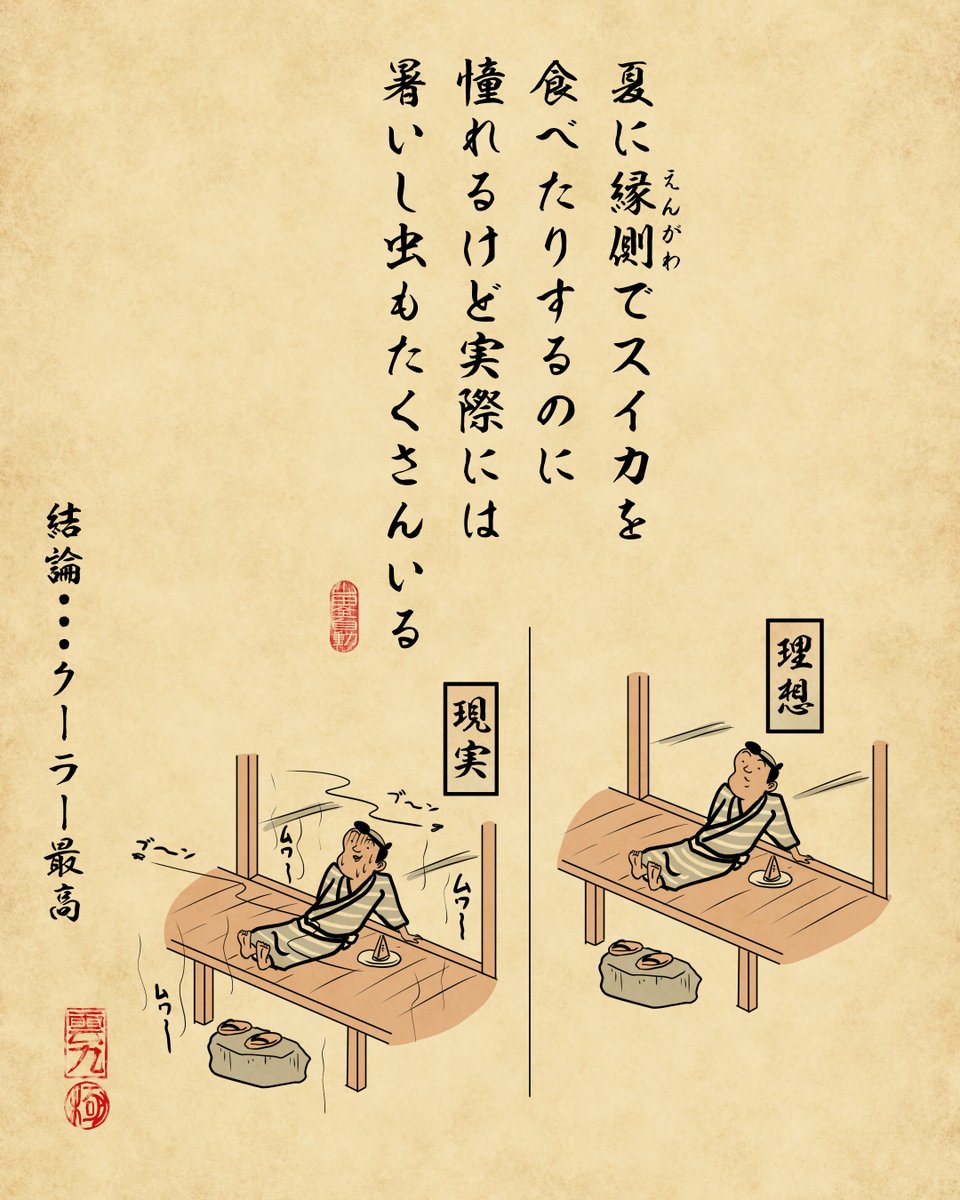 夏に縁側でスイカを
えんがわ
食べたりするのに
憧れるけど実際には
暑いし虫もたくさんいる
理想
現実
ブ〜ン
ムワー
ムワー
ブ〜ン
ムワー
結論・・・クーラー最高